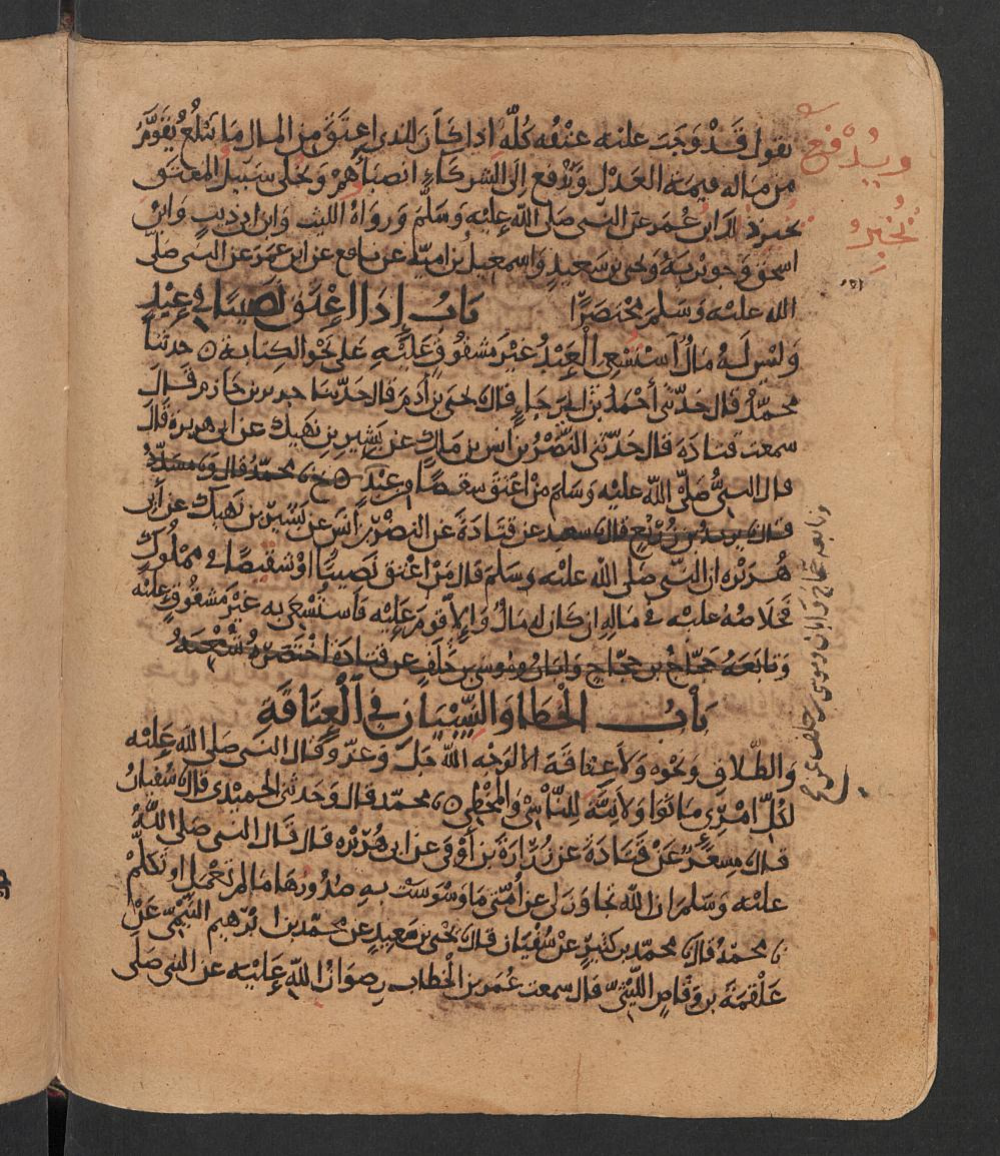 يقول قد وجب عليه عتقه كله اذا كان للذى اعتق من المال ما يبلغ يقوم
من ماله قيمة العدل ويدفع إلى الشركاء انصباؤهم ويخلى سبيل المعتق
يخبر ذلك ابن عمر عن النبى صلى الله عليه وسلم ورواه الليث وابن ابى ذيب وابن
اسحق وجويرية ويحيى بن سعيد واسمعيل بن امية عن نافع عن ابن عمر عن النبى صلى
الله عليه وسلم مختصرا باب إذا اعتق نصيبا فى عبد
وليس له مال استسعى العبد غير مشقوق عليه على نحو الكتابة حدثنا
محمد قال حدثنى أحمد بن ابى رجاء قال يحيى بن آدم قال حدثنا جرير بن حازم قال
سمعت قتادة قال حدثنى النضر بن انس بن مالك عن بشير بن نهيك عن ابى هريرة قال
قال النبى صلى الله عليه وسلم من اعتق شقيصا من عبد ح محمد قال مسدد
قال يزيد بن زريع قال سعيد عن قتادة عن النضر بن أنس عن بشير بن نهيك عن أبى
هريرة ان النبى صلى الله عليه وسلم قال من اعتق نصيبا او شقيصا فى مملوك
فخلاصه عليه فى ماله ان كان له مال وإلا قوم عليه فاستسعى به غير مشقوق عليه
وتابعه حجاج بن حجاج وابان وموسى بن خلف عن قتادة اختصره شعبة
باب الخطا والنسيان فى العتاقة
والطلاق ونحوه ولا عتاقة الا لوجه الله جل وعز وقال النبى صلى الله عليه
لكل امرئ ما نوا ولا نية للناسى والمخطى محمد قال وحدثنى الحميدى قال سفيان
قال مسعر عن قتادة عن زرارة بن أوفى عن ابى هريرة قال قال النبى صلى الله
عليه وسلم ان الله تجاوز لى عن أمتى ما وسوست به صدورها ما لم تعمل او تكلم
محمد قال محمد بن كثير عن سفيان قال يحيى بن سعيد عن محمد بن ابرهيم التيمى عن
علقمة بن وقاص الليثى قال سمعت عمر بن الخطاب رضوان الله عليه عن النبى صلى
ويدفع
يخبر
وتابعه حجاج وابان وموسى بن خلف عن